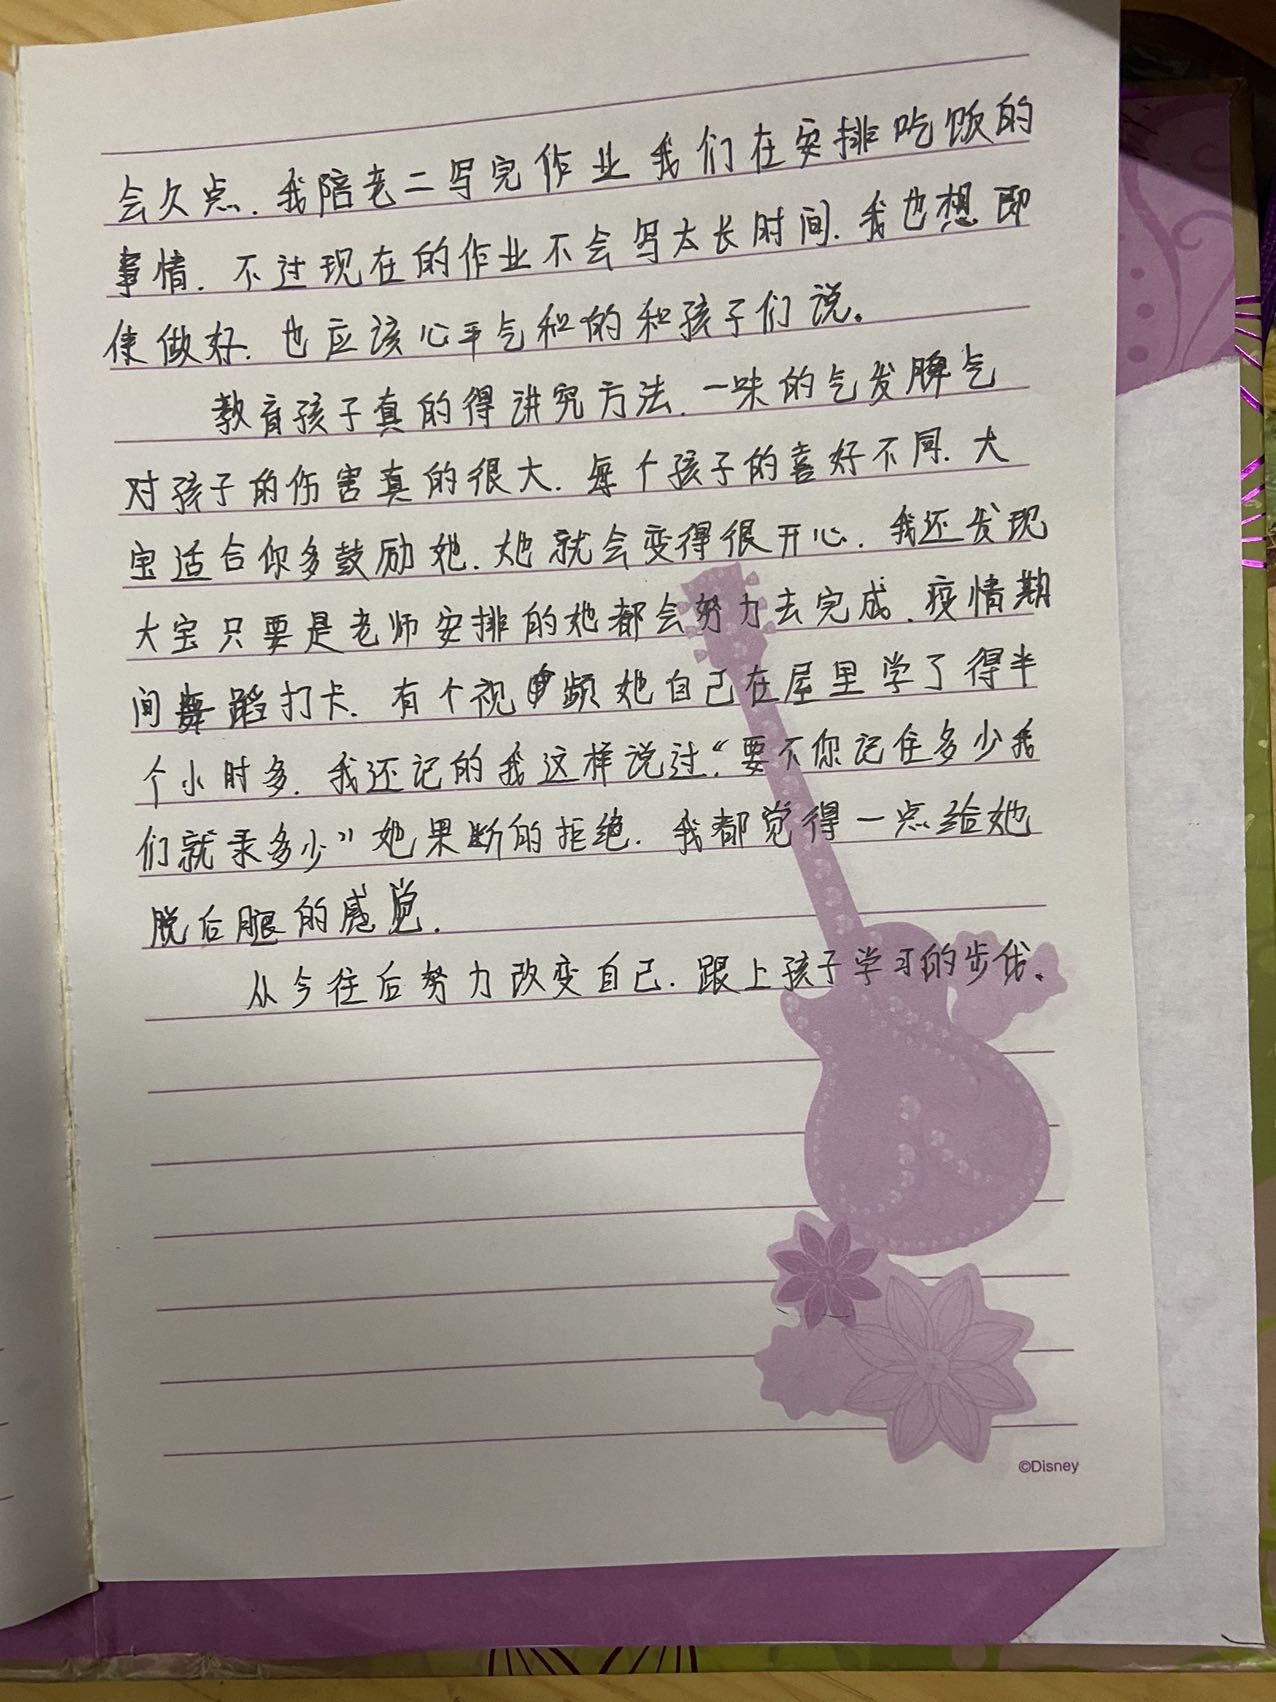 会欠点.我陪老二写完作业我们在安排吃饭的
事情.不过现在的作业不会写太长时间.我也想即
使做好.也应该心平气和的和孩子们说。
教育孩子真的得讲究方法.一味的气发脾气
对孩子的伤害真的很大.每个孩子的喜好不同.大
宝适合你多鼓励她.她就会变得很开心.我还发现
大宝只要是老师安排的她都会努力去完成.疫情期
间舞蹈打卡.有个视频她自己在屋里学了得半
个小时多.我还记的我这样说过“要不你记住多少我
们就录多少”她果断的拒绝.我都觉得一点给她
脱后腿的感觉.
从今往后努力改变自己.跟上孩子学习的步伐。
©Disney